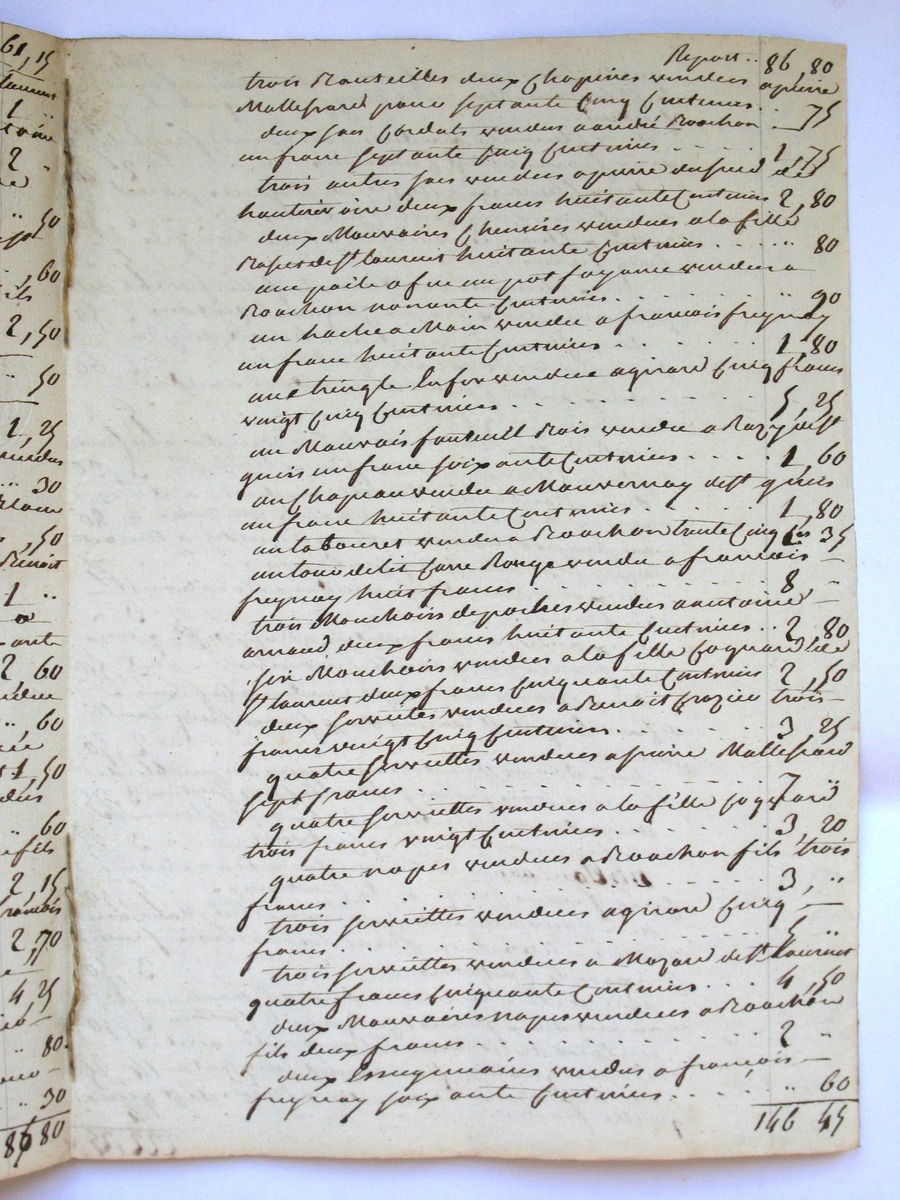 61,15
1
2
50
60
2,50
50
1,25
30
50
1
2,60
60
1,50
60
2,15
2,70
4,25
80
30
86 80
Report .. 86,80
trois Bouteilles deux Chopines vendus a pierre
Mallessard pour septante Cinq Centimes .. 75
deux sacs Cordats vendus a andré Brochon
un franc septante Cinq Centimes . . . . 1,75
trois autres sacs vendus a pierre
deux francs huitante Centimes 2,80
deux Mauvaises Chemises vendues a la fille
de St laurent huitante Centimes . . . . " 80
une poile a frire un pot fayance vendus a
Brochon nonante Centimes . . . . " 90
un hache a Main vendue a francois freynay
un franc huitante Centimes . . . . 1,80
une tringle en fer vendue a girard Cinq francs
vingt Cinq Centimes . . . . 5,25
un Mauvais fauteuil Bois vendu a de St
genis un franc soixante Centimes . . . . 1,60
un Chapeau vendu a Mauvernay de St genis
un franc huitante Centimes . . . . 1,80
un tabouret vendu a Brochon trente Cinq Ces 35
un tour de lit Carré Rouge vendu a francois
freynay huit francs . . . . 8 "
trois Mouchoirs de poches vendus a antoine
arnaud deux francs huitante Centimes . . 2,80
six Mouchoirs vendues a la fille Coquard de
St laurent deux francs Cinquante Centimes 2,50
deux serviettes vendues a Benoit Crozier trois
francs vingt Cinq Centimes . . . . 3,25
quatre serviettes vendues a pierre Mallessard
sept francs . . . . 7 "
quatre serviettes vendues a la fille joquard
trois francs vingt Centimes . . . . 3,20
quatre napes vendues a Brochon fils trois
francs . . . . 3, "
trois serviettes vendues a girard Cinq
francs . . . . 5 "
trois serviettes vendues a Mazard de St laurent
quatre francs Cinquante Centimes . . . 4,50
deux Mauvaises napes vendues a Brochon
fils deux francs . . . . 2 "
deux Essuyemains vendus a francois
freynay soixante Centimes . . . . " 60
146 45